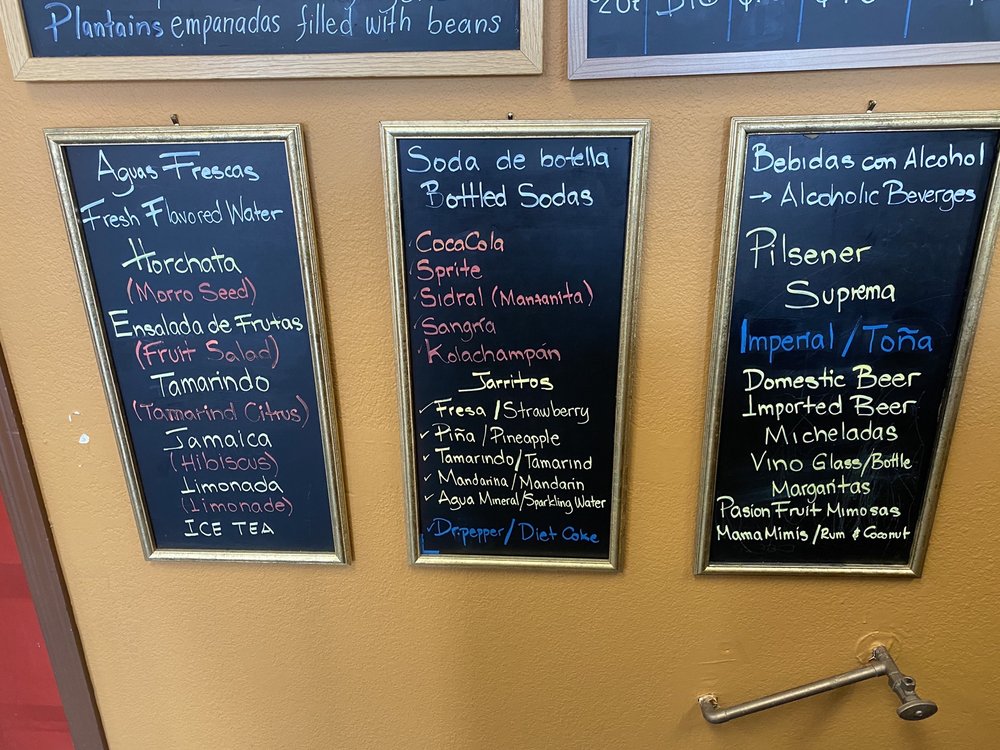 Plantains empanadas filled with beans
Aguas Frescas
Fresh Flavored Water
Horchata
(Morro Seed)
Ensalada de Frutas
(Fruit Salad)
Tamarindo
(Tamarind Citrus)
Jamaica
(Hibiscus)
Limonada
(Limonade)
ICE TEA
Soda de botella
Bottled Sodas
✓ CocaCola
✓ Sprite
✓ Sidral (Manzanita)
✓ Sangría
✓ Kolachampán
Jarritos
✓ Fresa / Strawberry
✓ Piña / Pineapple
✓ Tamarindo / Tamarind
✓ Mandarina / Mandarin
✓ Agua Mineral / Sparkling Water
✓ Dr.pepper / Diet Coke
Bebidas con Alcohol
→ Alcoholic Beverges
Pilsener
Suprema
Imperial / Toña
Domestic Beer
Imported Beer
Micheladas
Vino Glass/Bottle
Margaritas
Pasion Fruit Mimosas
Mama Mimis / Rum & Coconut